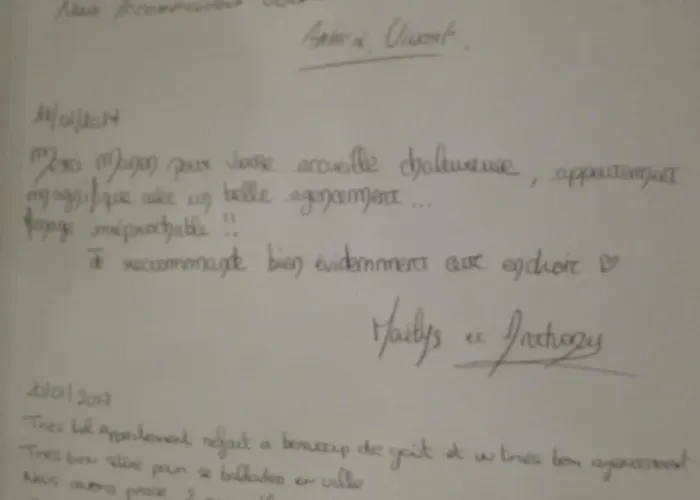 Nous recommandons
& Vincent.
11/01/2017
Merci Manon pour votre accueille chaleureuse, appartement
magnifique avec un belle agencement...
ménage irréprochable !!
Je recommande bien évidemment cet endroit ♡
Maelys et Anthony
20/01/2017
Très bel appartement refait a beaucoup de goût et un très bon agencement
Très bien situé pour se ballader en ville
Nous avons passé